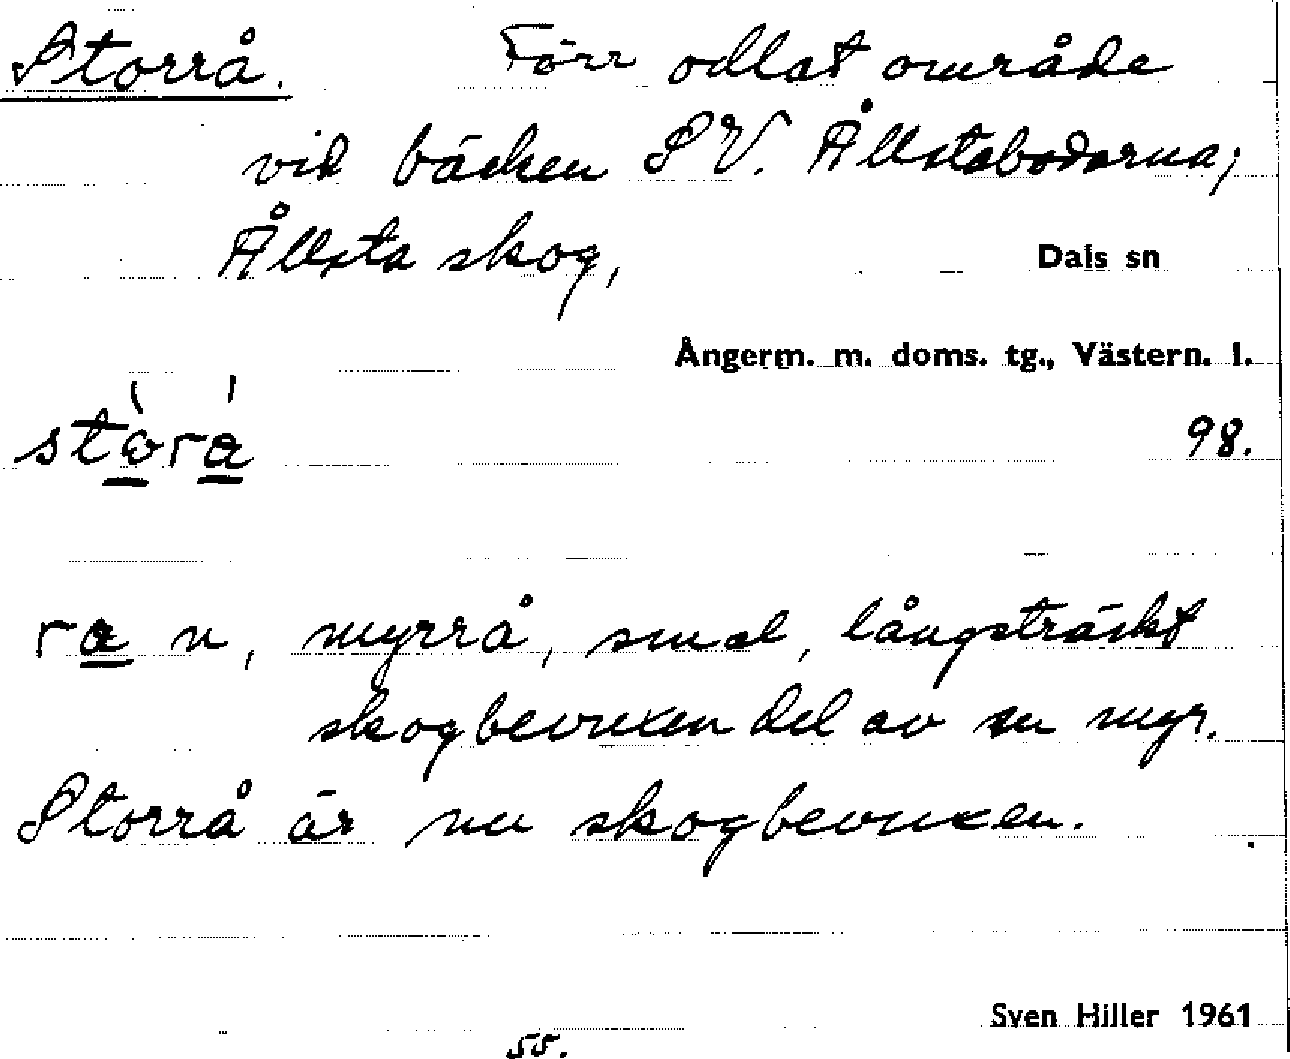 Storrå. Förr odlat område
vid bäcken SV. Ållstabodarna;
Ållsta skog, Dals sn
Ångerm. m. doms. tg., Västern. l.
98.
n, myrrå, smal, långsträckt
skogbevuxen del av en myr.
Storrå är nu skogbevuxen.
Sven Hiller 1961
55.